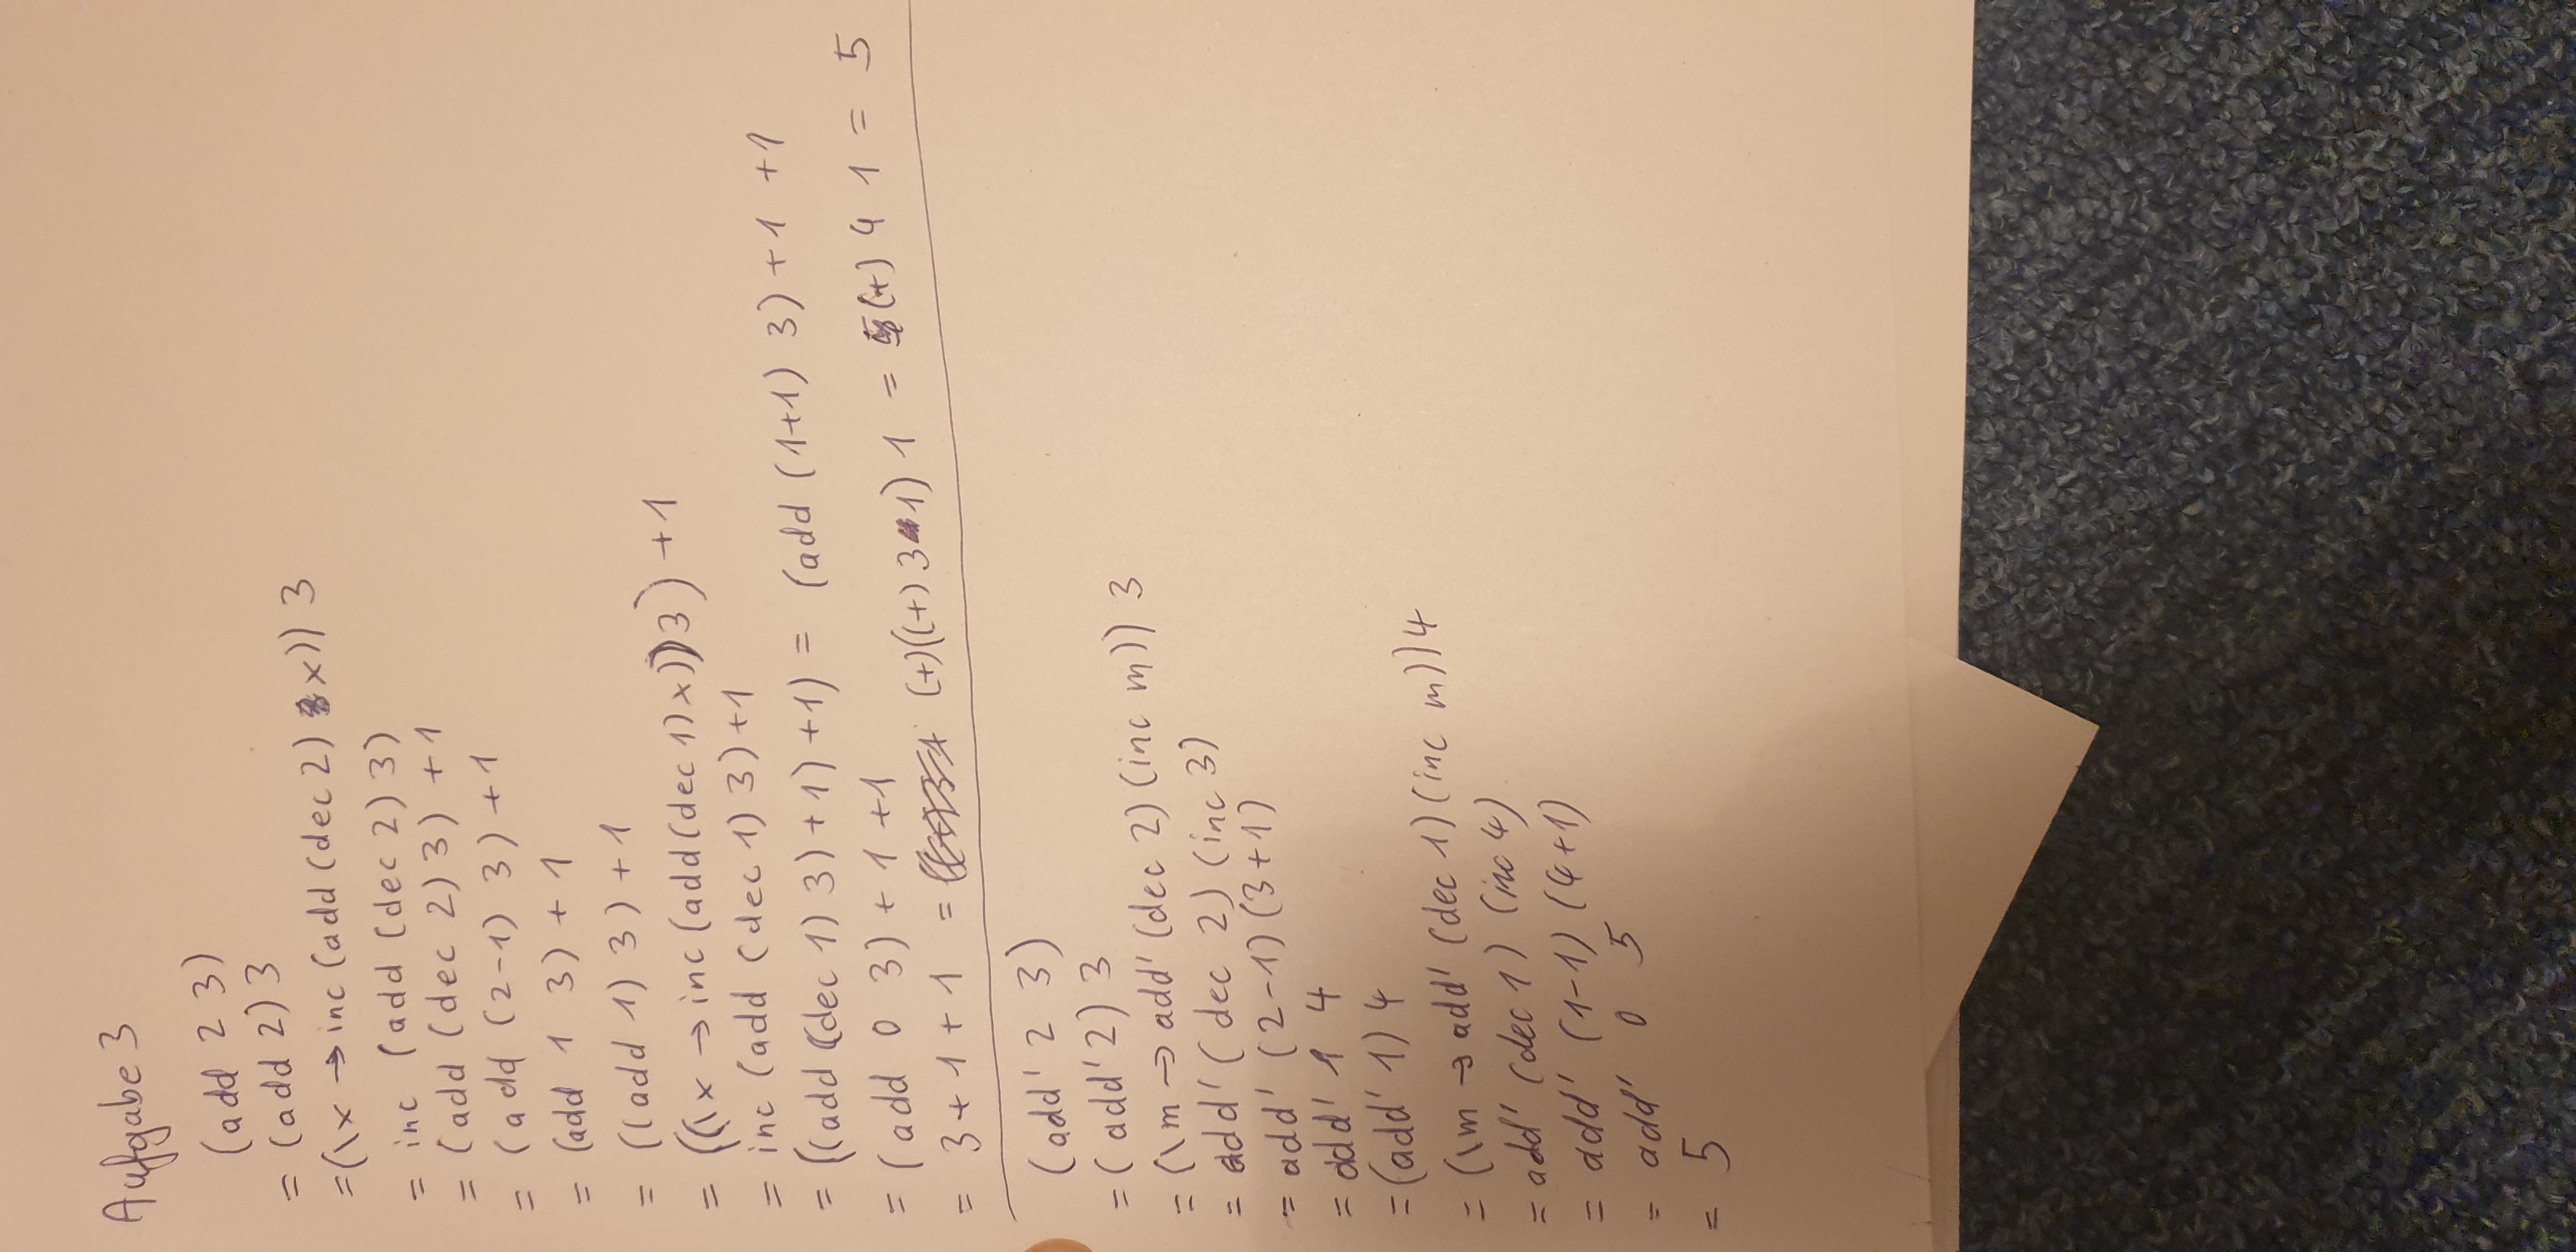 Aufgabe 3
(add 2 3)
= (add 2) 3
= (\x → inc (add (dec 2) x)) 3
= inc (add (dec 2) 3)
= (add (dec 2) 3) + 1
= (add (2-1) 3) + 1
= (add 1 3) + 1
= ((add 1) 3) + 1
= ((\x → inc (add (dec 1) x)) 3) + 1
= inc (add (dec 1) 3) + 1
= ((add (dec 1) 3) + 1) + 1) = (add (1+1) 3) + 1 + 1
= (add 0 3) + 1 + 1
= 3 + 1 + 1 = (+) ((+) 3 1) 1 = (+) 4 1 = 5
(add' 2 3)
= (add' 2) 3
= (\m → add' (dec 2) (inc m)) 3
= add' (dec 2) (inc 3)
= add' (2-1) (3+1)
= add' 1 4
= (add' 1) 4
= (\m → add' (dec 1) (inc m)) 4
= add' (dec 1) (inc 4)
= add' (1-1) (4+1)
= add' 0 5
= 5